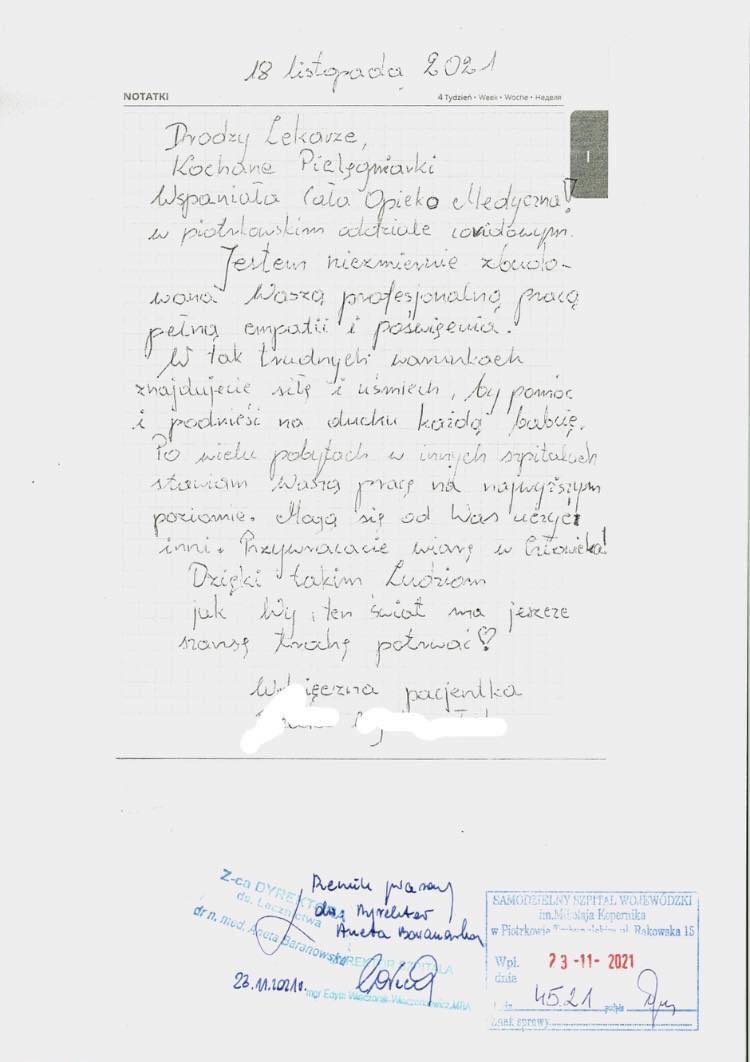 18 listopada 2021
NOTATKI
4 Tydzień • Week • Woche • Неделя
I
Drodzy Lekarze,
Kochane Pielęgniarki
Wspaniała Cała Opieko Medyczna!
w piotrkowskim oddziale covidowym.
Jestem niezmiernie zbudo-
wana Waszą profesjonalną pracą
pełną empatii i poświęcenia.
W tak trudnych warunkach
znajdujecie siłę i uśmiech, by pomóc
i podnieść na duchu każdą babcię.
Po wielu pobytach w innych szpitalach
stawiam Waszą pracę na najwyższym
poziomie. Mogą się od Was uczyć
inni. Przywracacie wiarę w Człowieka!
Dzięki takim Ludziom
jak Wy, ten świat ma jeszcze
szansę trochę potrwać♡
Wdzięczna pacjentka
Z-ca DYREKTORA
ds. Lecznictwa
dr n. med. Aneta Baranowska
prasowy
Dyrektor
Aneta Baranowska
23.11.2021r.
DYREKTOR SZPITALA
mgr Edyta
SAMODZIELNY SZPITAL WOJEWÓDZKI
im. Mikołaja Kopernika
w Piotrkowie Trybunalskim ul. Rakowska 15
Wpł.
dnia
23 -11- 2021
L.dz. 4521
Znak sprawy